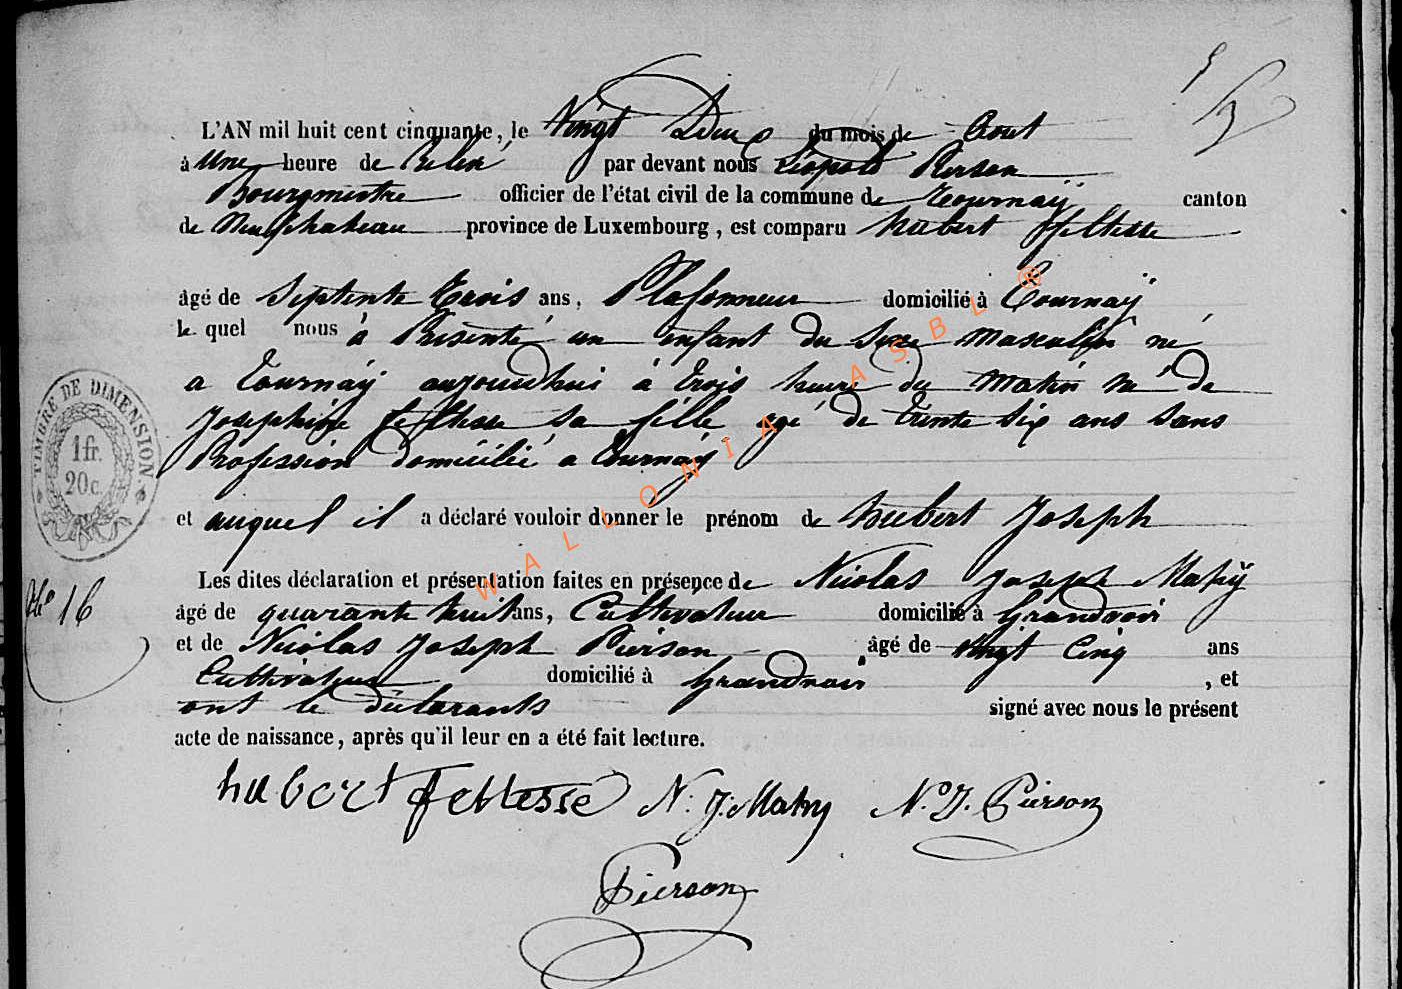 L'AN mil huit cent cinquante, le Vingt Deux du mois de Aout
à Une heure de Relevé par devant nous Léopold Pierson
Bourgmestre officier de l'état civil de la commune de Tournaÿ canton
de Neufchateau province de Luxembourg, est comparu hubert ffeltesse
âgé de Septente trois ans, Plafonneur domicilié à Tournaÿ
le quel nous à Présenté un enfant du Sexe masculin né
a Tournaÿ aujourdhui à trois heure du matin né de
Josephine feltesse sa fille agé de trente six ans sans
Profession domicilié a Tournaÿ
et auquel il a déclaré vouloir donner le prénom de hubert Joseph
Les dites déclaration et présentation faites en présence de Nicolas Joseph Mahÿ
âgé de quarante huit ans, Cultivateur domicilié à Grandvoir
et de Nicolas Joseph Pierson âgé de vingt Cinq ans
Cultivateur domicilié à Grandvoir, et
ont le déclarants signé avec nous le présent
acte de naissance, après qu'il leur en a été fait lecture.
hubert feltesse N. J. Mahy N. J. Pierson
Pierson
TIMBRE DE DIMENSION
1 fr.
20 c.
No 16
WALLONIA ASBL ®